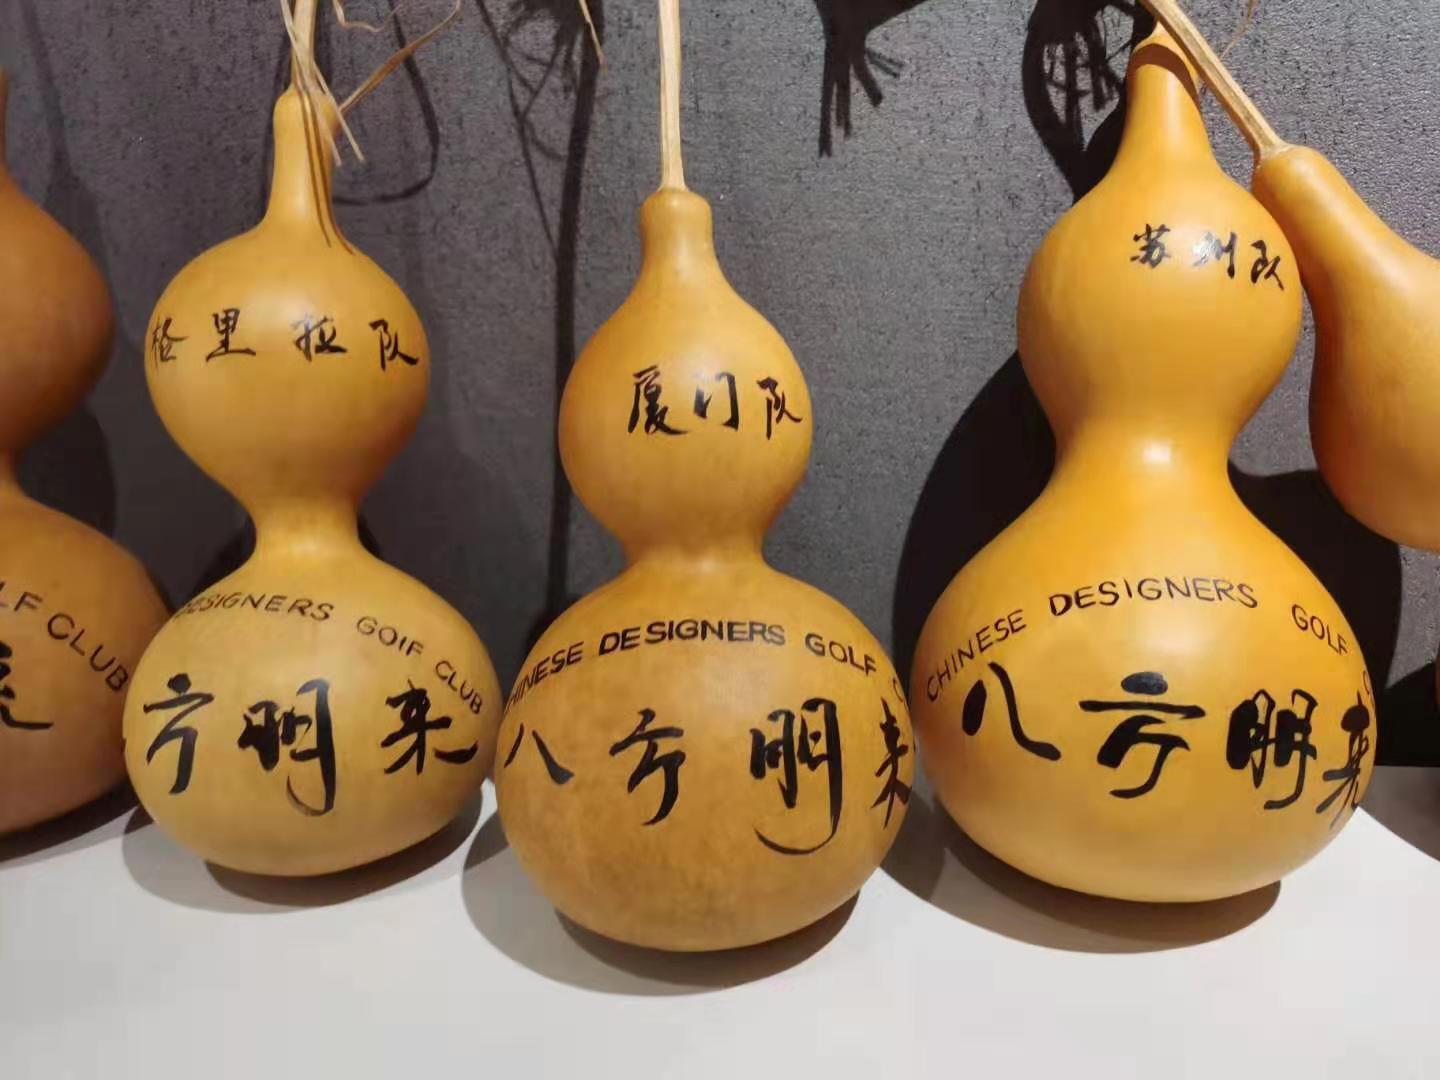 LF CLUB
格里拉队
DESIGNERS GOIF CLUB
方明来
厦门队
CHINESE DESIGNERS GOLF
八方明来
苏州队
CHINESE DESIGNERS GOLF
八方明来